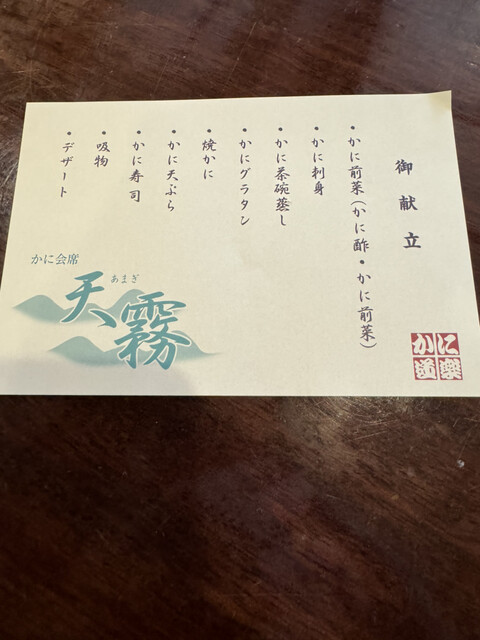 御献立
・かに前菜(かに酢・かに前菜)
・かに刺身
・かに茶碗蒸し
・かにグラタン
・焼かに
・かに天ぷら
・かに寿司
・吸物
・デザート
かに会席
あまぎ
天霧
かに道楽